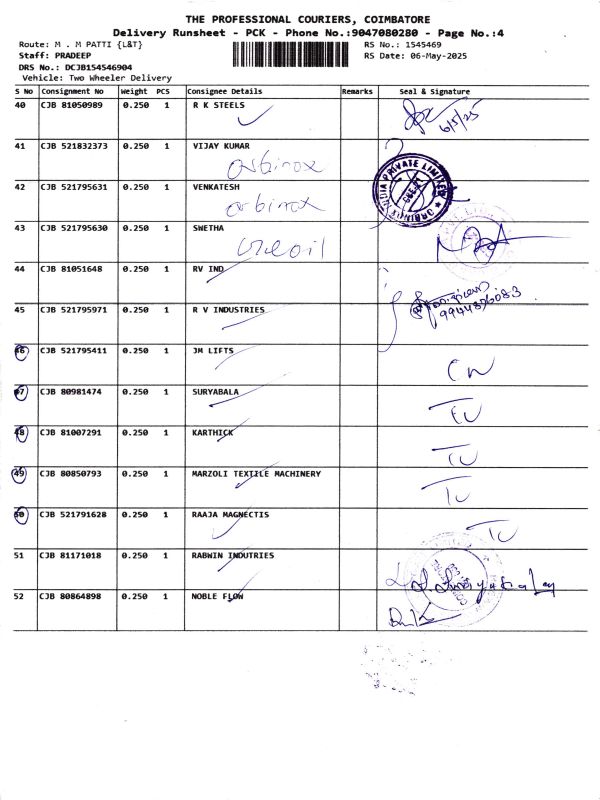 THE PROFESSIONAL COURIERS, COIMBATORE
Delivery Runsheet - PCK - Phone No.:9047080280 - Page No.:4
Route: M . M PATTI {L&T} RS No.: 1545469
Staff: PRADEEP RS Date: 06-May-2025
DRS No.: DCJB154546904
Vehicle: Two Wheeler Delivery
S No Consignment No Weight PCS Consignee Details Remarks Seal & Signature
40 CJB 81050989 0.250 1 R K STEELS
6/5/25
41 CJB 521832373 0.250 1 VIJAY KUMAR
orbinox
42 CJB 521795631 0.250 1 VENKATESH
orbinox
43 CJB 521795630 0.250 1 SWETHA
44 CJB 81051648 0.250 1 RV IND
45 CJB 521795971 0.250 1 R V INDUSTRIES
9944896083
46 CJB 521795411 0.250 1 JM LIFTS
CW
47 CJB 80981474 0.250 1 SURYABALA
TU
48 CJB 81007291 0.250 1 KARTHICK
TU
49 CJB 80850793 0.250 1 MARZOLI TEXTILE MACHINERY
TU
50 CJB 521791628 0.250 1 RAAJA MAGNECTIS
TU
51 CJB 81171018 0.250 1 RABWIN INDUTRIES
52 CJB 80864898 0.250 1 NOBLE FLOW